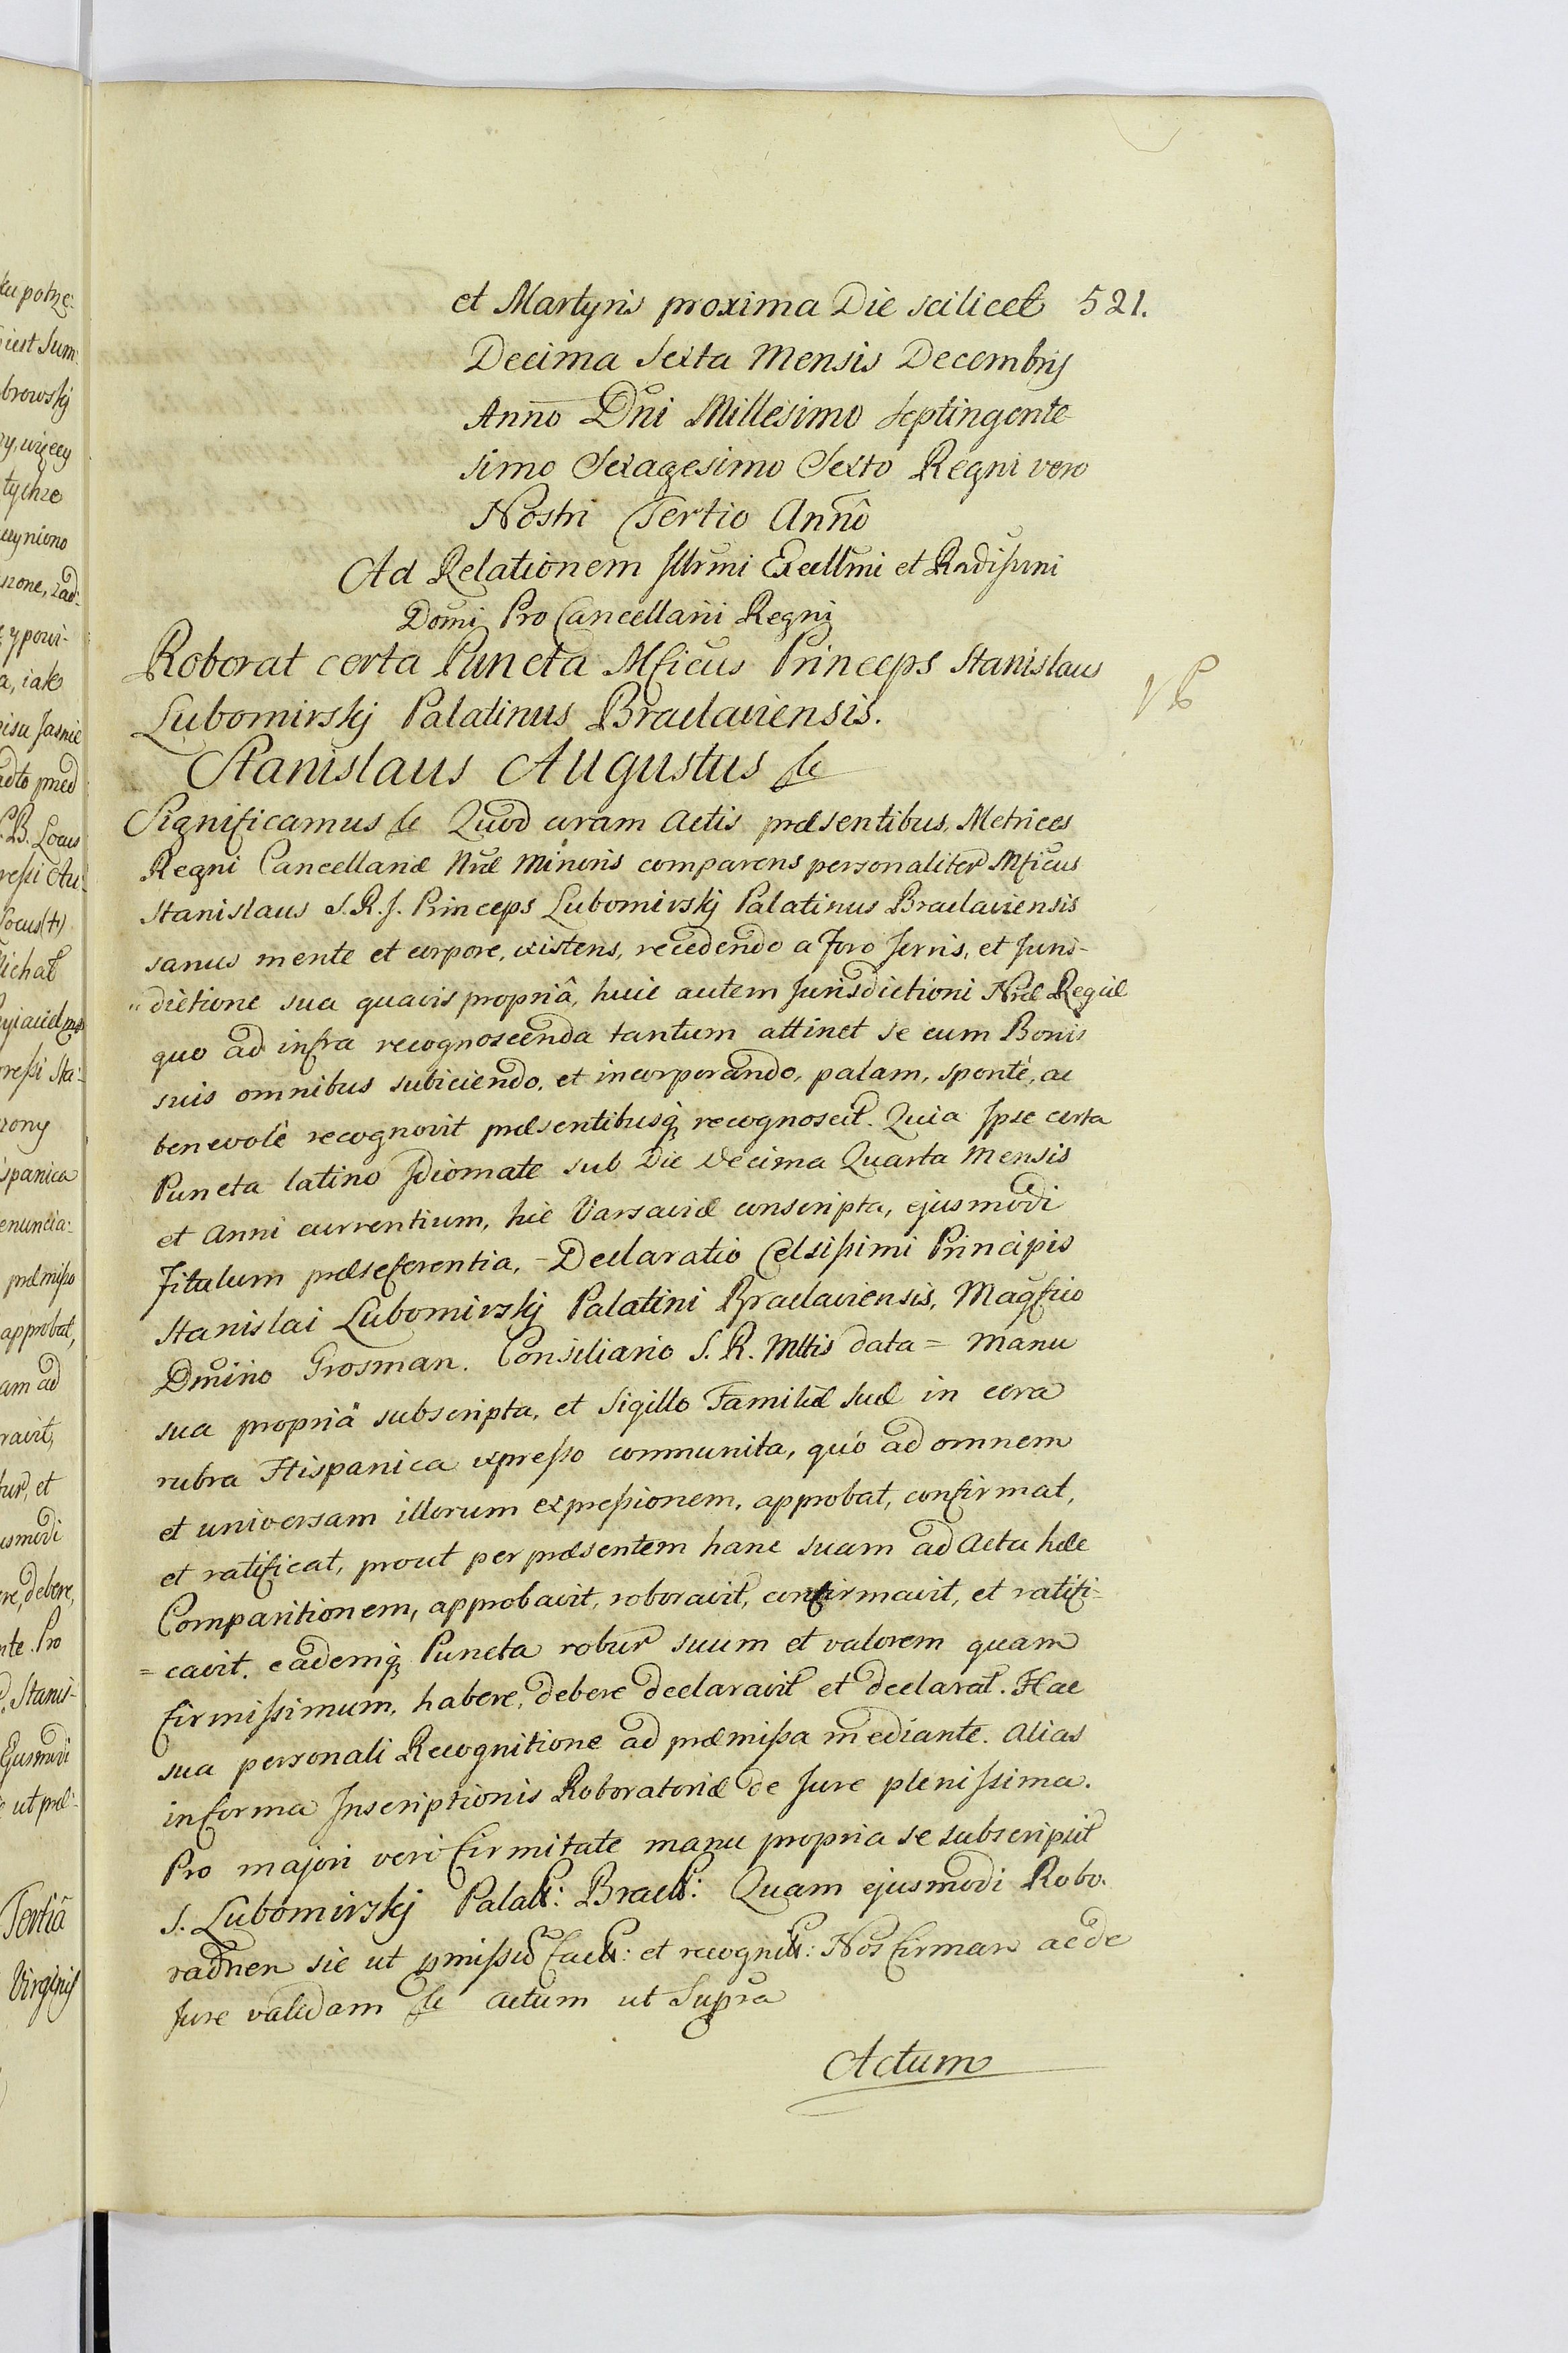 et Martyris proxima Die scilicet 521.
Decima Sexta Mensis Decembris
Anno Dni Millesimo Septingente-
simo Sexagesimo Sexto Regni vero
Nostri Tertio Annô
Ad Relationem Illrmi Excellmi et Rndissimi
Domi Pro Cancellarii Regni
Roborat certa Puncta Mficus Princeps Stanislaus
Lubomirskj Palatinus Braclaviensis.
Stanislaus Augustus &c
Significamus &c Quod coram Actis præsentibus, Metrices
Regni Cancellariæ Nræ Minoris comparens personaliter Mficus
Stanislaus S. R. J. Princeps Lubomirskj Palatinus Braclaviensis
sanus mente et corpore, existens, recedendo a Foro Terris, et Juris-
"dictione sua quavis propriâ, huic autem Jurisdictioni Nræ Regiæ
quo ad infra recognoscenda tantum attinet se cum Bonis
suis omnibus subiciendo, et incorporando, palam, spontè, ac
benevolè recognovit præsentibusq; recognoscit. Quia Ipse certa
Puncta latino Idiomate sub Die Decima Quarta Mensis
et Anni currentium, hic Varsaviæ conscripta, ejusmodi
Titulum præseferentia, - Declaratio Celsissimi Principis
Stanislai Lubomirskj Palatini Braclaviensis, Magfico
Dmino Grosman. Consiliario S. R. Mttis data = Manu
sua propriâ subscripta, et Sigillo Familiæ suæ in cera
rubra Hispanica expresso communita, quò ad omnem
et universam illorum expressionem, approbat, confirmat,
et ratificat, prout per præsentem hanc suam ad Acta hæc
Comparitionem, approbavit, roboravit, confirmavit, et ratifi-
= cavit. eademq; Puncta robur suum et valorem quam
firmissimum, habere, debere declaravit et declarat. Hac
sua personali Recognitione ad præmissa mediante. Alias
in forma Inscriptionis Roboratoriæ de Jure plenissima.
Pro majori verò firmitate manu propria se subscripsit
S. Lubomirskj Palatt: Bracl: Quam ejusmodi Robo-
radnen sic ut pmisso fact: et recognit: Nos firmam ac de
Jure validam &c Actum ut Supra
Actum